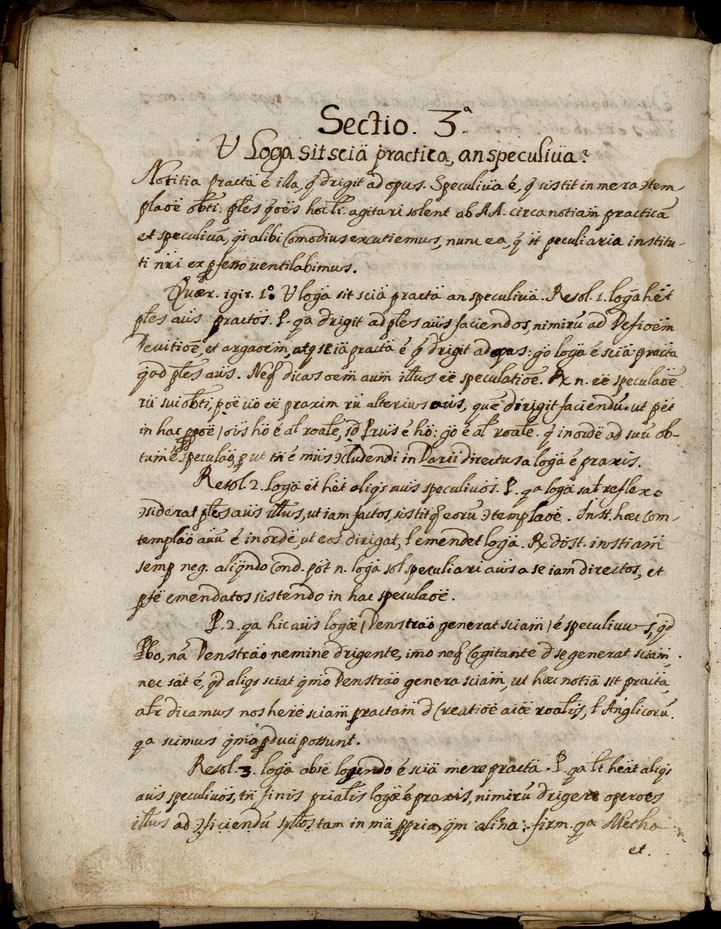 Sectio. 3.ª
V Loga sit sciā practica, an speculiua?
Notitia practā ē illa, q̄ drigit ad opus. Speculiua ē, q̄ sistit in mera ɔtem
plaōe obti. ples qōes hoc li. agitari solent ab AA. circa notiam practicā
et speculiuā, qs alibi Comodius excutiemus, nunc ea q̄ st̄ peculiaria institu-
ti nr̄i ex pfesso ventilabimus.
Quær. igit. 1º V logā sit sciā practā an speculiuā. Resol. 1. logā hēt
ples aūs practos. P. qa drigit ad ples aūs faciendos, nimirū ad Defiōem
Deuitioē, et argaōem, atq sciā practā ē q̄ drigit ad opus: go logā ē sciā practa
quad ples aūs. Neq dicas oem aum illius eē speculatiōe. Rx n. eē speculaōe
rū sui obti, poē uo eē praxim rū alterius aūs, quē dirigit faciendū. ut pēt
in hac ppoē / oīs hō ē aīl roale, sd Pruis ē hō: go ē aīl roale. q̄ in ordē ad suū ob-
tum ē speculaō, p ut tn̄ ē miīs ɔcludendi in Darii directus a logā ē praxis.
Resol. 2. logā ēt hēt aliqs aūs speculiuōs. P. qa logā sat reflexe
ɔsiderat ples aūs illius, ut iam factos, sistitq eorū ɔtemplaōe. Inst. hæc Con-
templaō auū ē in ordē, ut eos dirigat, l emendet logā. Rx dist. instiam
semp neg. aliqndo Cond. pōt n. logā sol speculiari aūs a se iam directos, et
pfē emendatos sistendo in hac speculaōe.
P. 2. qa hic aūs logæ / Denstrao generat sciam / ē speculiuus, qd
Pbo, nā Denstrao nemine drigente, imo neq Cogitante d se generat sciam.
nec sat ē, qd aliqs sciat qmo Denstrao genera sciam, ut hæc notiā sit practa,
alr dicamus nos here sciam practam d Creatiōe aiæ roalis, l Anglicorū.
qa scimus qmo pduci possunt.
Resol. 3. logā absē loqendo ē sciā mere practā. P. qa lt heāt aliqs
aūs speculiuōs, tn̄ finis prialis logæ ē praxis, nimirū drigere operoēs
illius ad ɔficiendū syllos tam in mā ppria, qm aliēa: firm. qa Mecha
et.